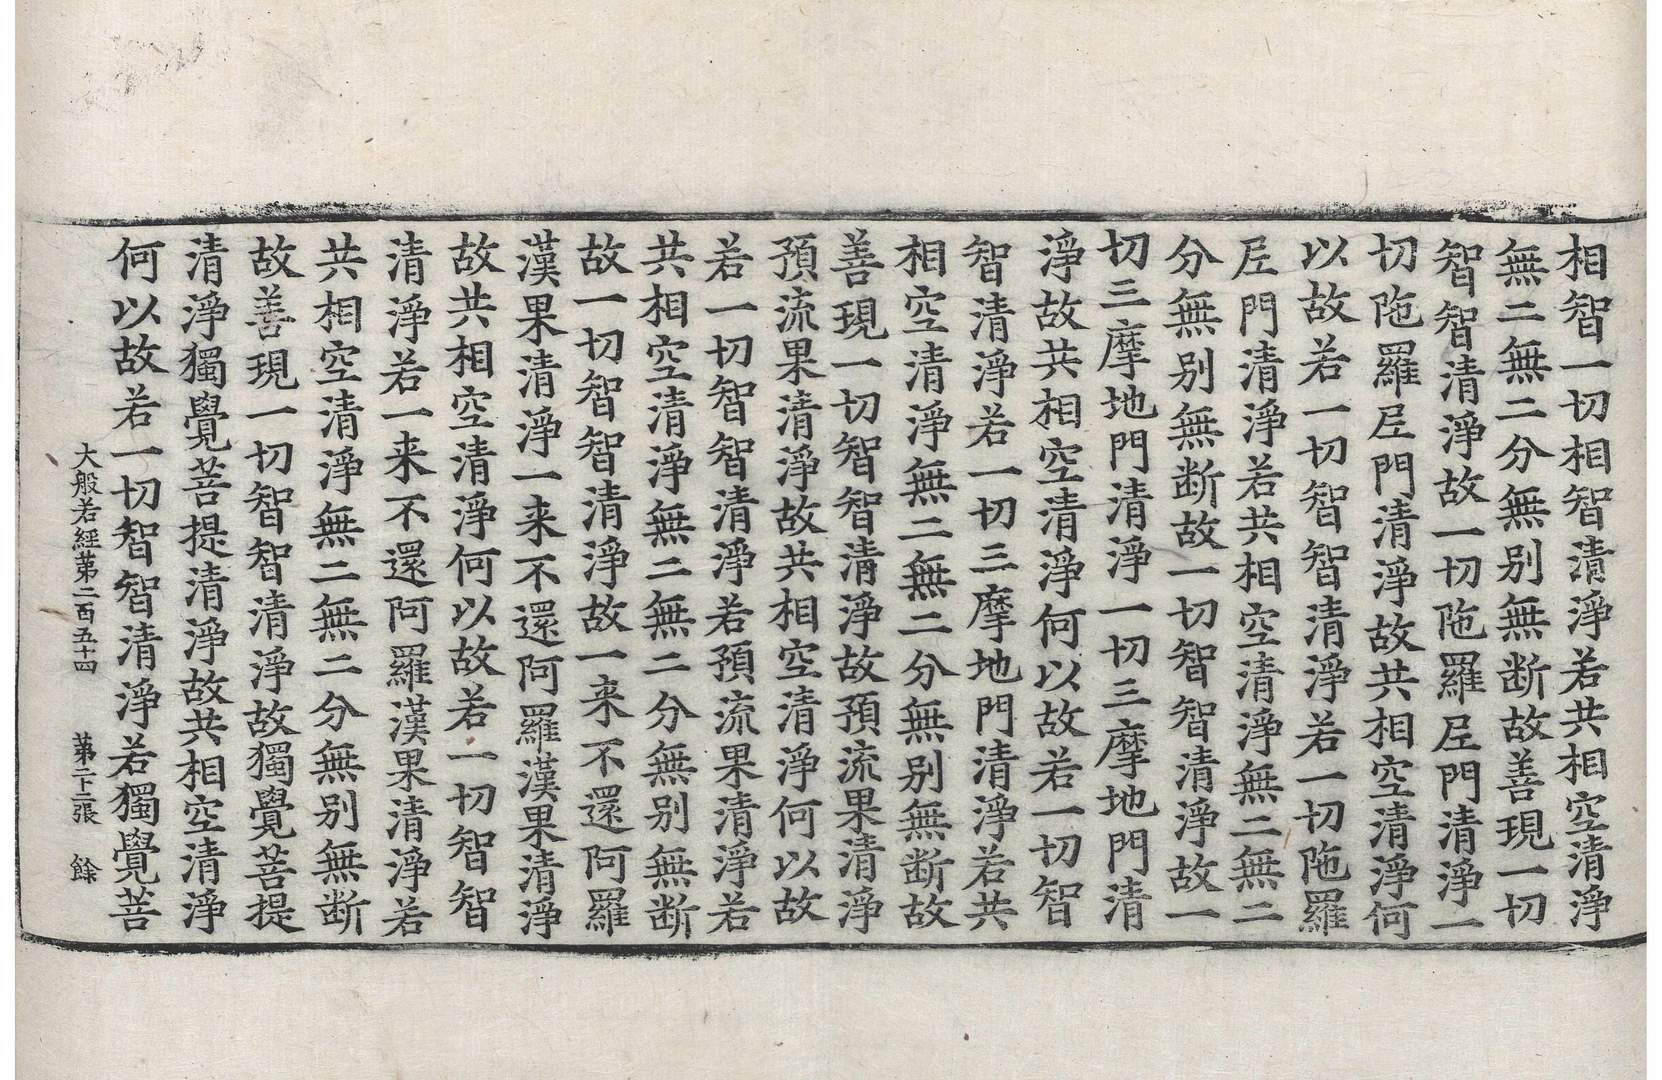 相智一切相智清淨若共相空清淨
無二無二分無别無断故善現一切
智智清淨故一切陁羅尼門清淨一
切陁羅尼門清淨故共相空清淨何
以故若一切智智清淨若一切陁羅
尼門清淨若共相空清淨無二無二
分無别無断故一切智智清淨故一
切三摩地門清淨一切三摩地門清
淨故共相空清淨何以故若一切智
智清淨若一切三摩地門清淨若共
相空清淨無二無二分無别無断故
善現一切智智清淨故預流果清淨
預流果清淨故共相空清淨何以故
若一切智智清淨若預流果清淨若
共相空清淨無二無二分無别無断
故一切智智清淨故一来不還阿羅
漢果清淨一来不還阿羅漢果清淨
故共相空清淨何以故若一切智智
清淨若一来不還阿羅漢果清淨若
共相空清淨無二無二分無别無断
故善現一切智智清淨故獨覺菩提
清淨獨覺菩提清淨故共相空清淨
何以故若一切智智清淨若獨覺菩
大般若經苐二百五十四 苐二十二張 餘